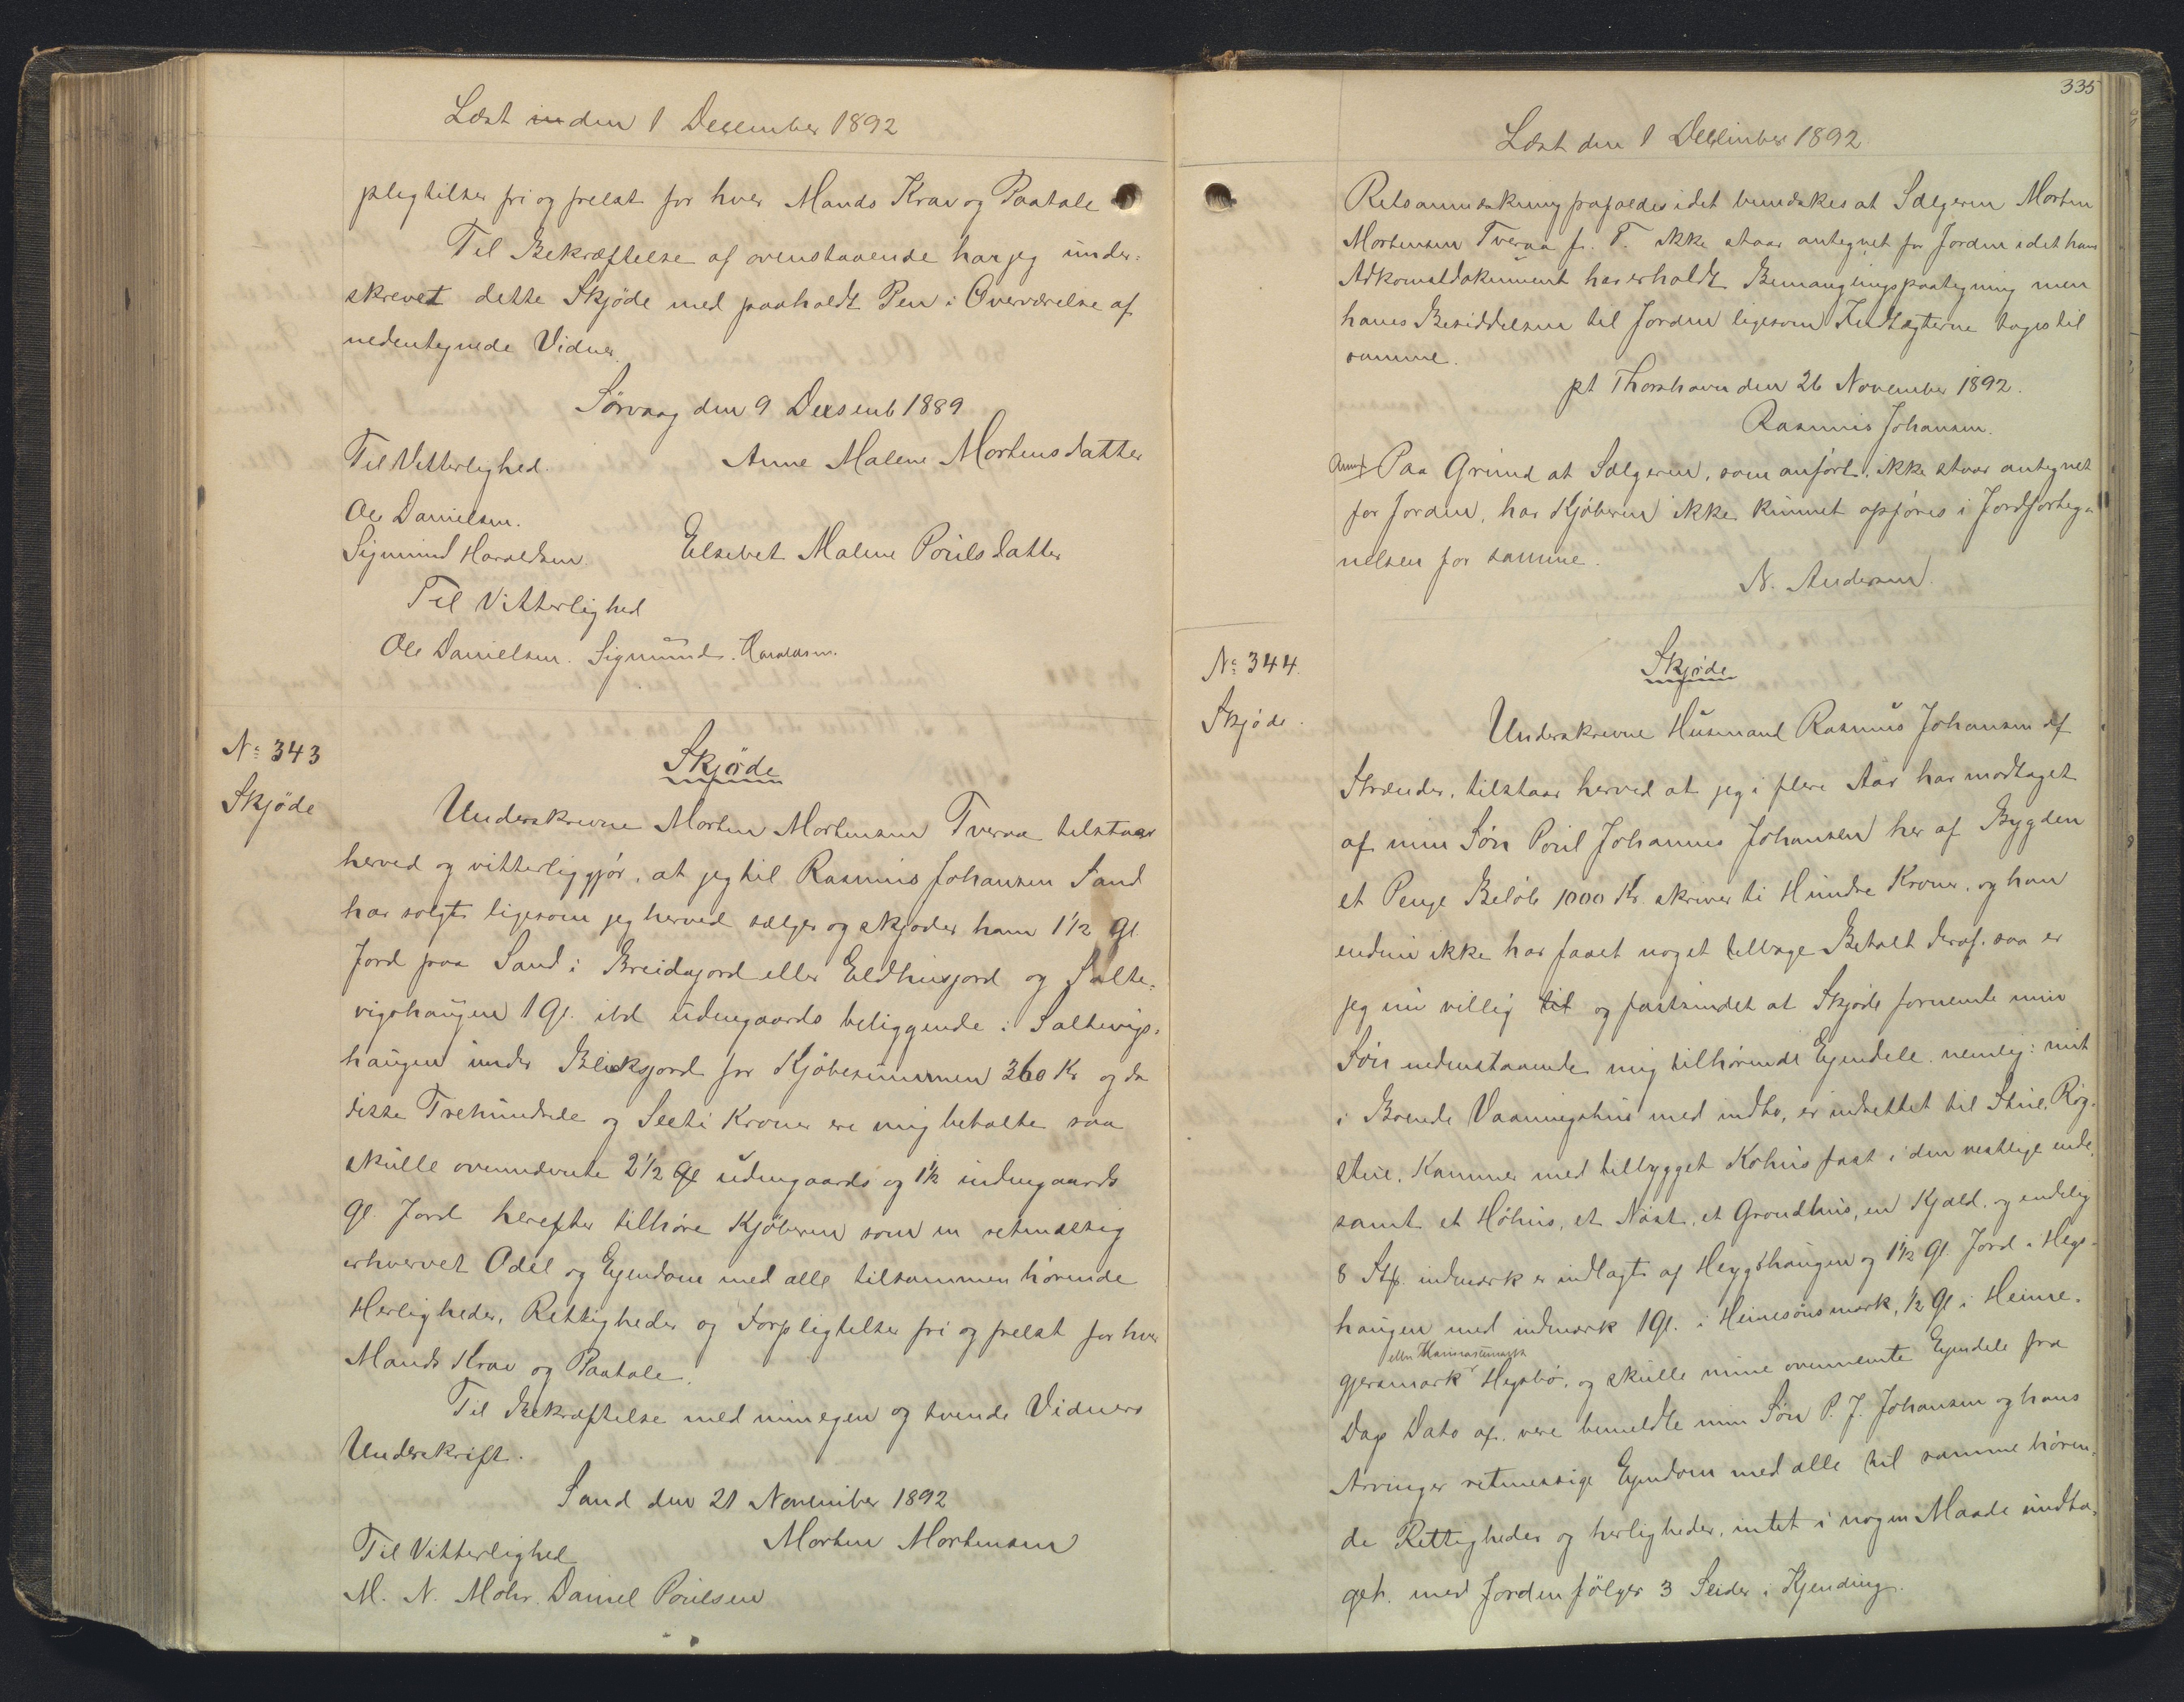 Læst in den 1 December 1892
pligtilser fri og frelst for hver Mands Krav og Paatale
Til Bekræftelse af ovenstaaende har jeg under-
skrevet dette Skjöde med paaholdt Pen i Overværelse af
nedentegnede Vidner.
Sørvaag den 9 Decemb 1889
Til Vitterlighed. Anne Malene Mortensdatter
Ole Danielsen.
Sigmund Haraldsen Elsebet Malene Poulsdatter
Til Vitterlighed
Ole Danielsen. Sigmund Haraldsen.
No 343
Skjöde
Skjöde
Underskrevne Morten Mortensen Tveraa tilstaar
herved og vitterliggjör, at jeg til Rasmus Johansen Sand
har solgt ligesom jeg herved sælger og skjöder ham 1 1/2 Gl.
Jord paa Sand i Breidajord eller Eldhusjord og Salte-
vigshaugen 1 Gl. ibd udengaards beliggende i Saltevigs-
haugen under Bliksjord for Kjöbesummen 360 Kr og da
disse Trehundrede og Seeti Kroner ere mig betalte saa
skulle ovennævnte 2 1/2 Gl udengaards og 1 1/2 indengaards
Gl. Jord herefter tilhöre Kjöberen som en retmæssig
erhvervet Odel og Eyendom med alle tilsammen hörende
Herligheder, Rettigheder og Forpligtelser fri og frelst for hver
Mands Krav og Paatale.
Til Bekræftelse med min egen og tvende Vidners
Underskrift.
Sand den 21 November 1892
Til Vitterlighed Morten Mortensen
M. N. Mohr. Daniel Poulsen
335
Læst den 1 December 1892
Retsanmærkning frafaldes idet bemærkes at Sælgeren Morten
Mortensen Tveraa f. T. ikke staar antegnet for Jorden idet hans
Adkomstdokument har erholdt Bemanglingspaategning men
hans Besiddelsen til Jorden ligesom Indtægterne tages til
samme.
pt Thorshavn den 26 November 1892.
Rasmus Johansen.
Anm: Paa Grund at Sælgeren, som anfört, ikke staar antegnet
for Jorden, har Kjöberen ikke kunnet opföres i Jordforteg-
nelsen for samme.
N. Andersen.
No 344.
Skjöde.
Skjöde
Underskrevne Husmand Rasmus Johansen af
Strænder, tilstaar herved at jeg i flere Aar har modtaget
af min Sön Poul Johannes Johansen her af Bygden
et Penge Belöb 1000 Kr. skriver ti Hundre Kroner, og han
endnu ikke har faaet noget tilbage Betalt deraf, saa er
jeg nu villig til og fastsindet at Skjöde fornemte min
Sön nedenstaaende mig tilhörende Eyendele, nemlig: mit
i Boende Vaaningshus med indbo, er indrettet til Stue, Rög-
stue, Kammer med tilbygget Kohus fast i den vestlige ende,
samt et Höhus, et Nöst, et Grondhus, en Kjald, og endelig
8 Stk. indmærk er indlagt af Heygshaugen og 1 1/2 Gl. Jord i Hegs-
haugen med indmærk 1 Gl. i Heinesönsmark, 1/2 Gl i Heime-
gjersmark eller Hegsbö, og skulle mine ovennemte Eyendele fra
Dags Dato af være bemeldte min Sön P. J. Johansen og hans
Arvinger retmæssige Eyendom med alle til samme hören-
de Rettigheder og herligheder, intet i nogen Maade undta-
get. med Jorden fölger 3 Seider i Kjending.